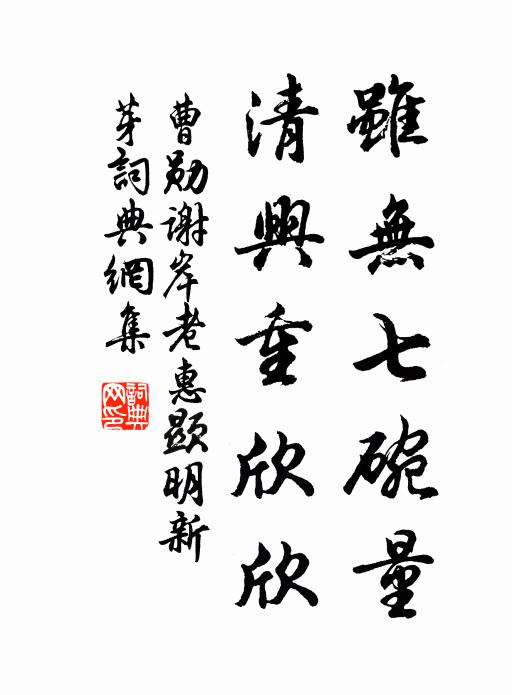 雖無七碗量
清興重欣欣
曹勛謝岸老惠顯明新
芽詞典網集
詞典
网印